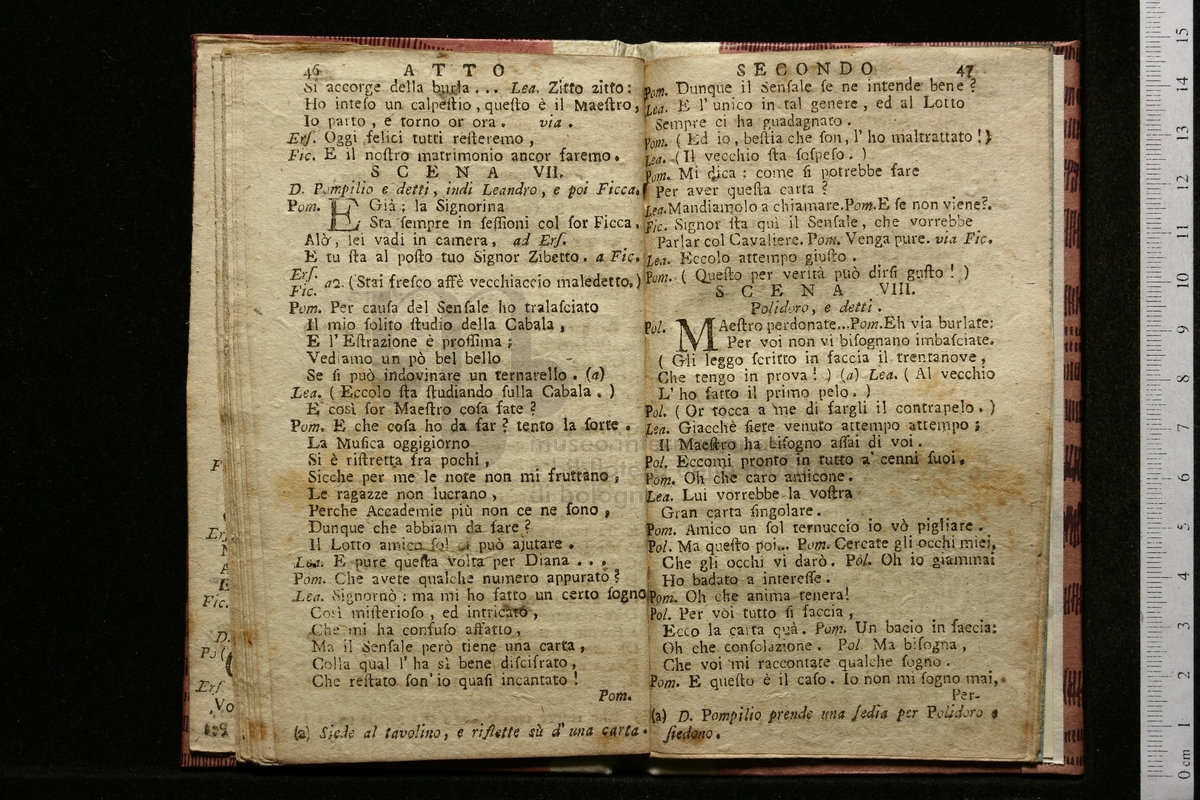 46 ATTO
Si accorge della burla... Lea. Zitto zitto:
Ho inteſo un calpeſtio, queſto è il Maeſtro,
Io parto, e torno or ora. via.
Erſ. Oggi felici tutti reſteremo,
Fic. E il noſtro matrimonio ancor faremo.
SCENA VII.
D. Pompilio e detti, indi Leandro, e poi Ficca.
Pom. E Già: la Signorina
Sta ſempre in ſeſſioni col ſor Ficca.
Alò, lei vadi in camera, ad Erſ.
E tu ſta al poſto tuo Signor Zibetto. a Fic.
Erſ.
Fic. a2. (Stai freſco affè vecchiaccio maledetto.)
Pom. Per cauſa del Senſale ho tralaſciato
Il mio ſolito ſtudio della Cabala,
E l'Eſtrazione è proſſima;
Vediamo un pò bel bello
Se ſi può indovinare un ternarello. (a)
Lea. (Eccolo ſta ſtudiando ſulla Cabala.)
E così ſor Maeſtro coſa fate?
Pom. E che coſa ho da far? tento la ſorte.
La Muſica oggigiorno
Si è riſtretta fra pochi,
Sicche per me le note non mi fruttano,
Le ragazze non lucrano,
Perche Accademie più non ce ne ſono,
Dunque che abbiam da fare?
Il Lotto amico ſol ci può ajutare.
Lea. E pure queſta volta per Diana...
Pom. Che avete qualche numero appurato?
Lea. Signornò: ma mi ho fatto un certo ſogno
Così miſterioſo, ed intricato,
Che mi ha confuſo affatto,
Ma il Senſale però tiene una carta,
Colla qual l'ha sì bene diſcifrato,
Che reſtato ſon'io quaſi incantato!
Pom.
(a) Siede al tavolino, e riflette sù d'una carta.
SECONDO 47
Pom. Dunque il Senſale ſe ne intende bene?
Lea. E l'unico in tal genere, ed al Lotto
Sempre ci ha guadagnato.
Pom. (Ed io, beſtia che ſon, l'ho maltrattato!)
Lea. (Il vecchio ſta ſoſpeſo.)
Pom. Mi dica: come ſi potrebbe fare
Per aver queſta carta?
Lea. Mandiamolo a chiamare. Pom. E ſe non viene?
Fic. Signor ſta quì il Senſale, che vorrebbe
Parlar col Cavaliere. Pom. Venga pure. via Fic.
Lea. Eccolo attempo giuſto.
Pom. (Queſto per verità può dirſi guſto!)
SCENA VIII.
Polidoro, e detti.
Pol. MAeſtro perdonate... Pom. Eh via burlate:
Per voi non vi biſognano imbaſciate.
(Gli leggo ſcritto in faccia il trentanove,
Che tengo in prova!) (a) Lea. (Al vecchio
L'ho fatto il primo pelo.)
Pol. (Or tocca a me di fargli il contrapelo.)
Lea. Giacchè ſiete venuto attempo attempo;
Il Maeſtro ha biſogno aſſai di voi.
Pol. Eccomi pronto in tutto a' cenni ſuoi.
Pom. Oh che caro amicone.
Lea. Lui vorrebbe la voſtra
Gran carta ſingolare.
Pom. Amico un ſol ternuccio io vò pigliare.
Pol. Ma queſto poi... Pom. Cercate gli occhi miei,
Che gli occhi vi darò. Pol. Oh io giammai
Ho badato a intereſſe.
Pom. Oh che anima tenera!
Pol. Per voi tutto ſi faccia,
Ecco la carta quà. Pom. Un bacio in faccia:
Oh che conſolazione. Pol. Ma biſogna,
Che voi mi raccontate qualche ſogno.
Pom. E queſto è il caſo. Io non mi ſogno mai,
Per-
(a) D. Pompilio prende una ſedia per Polidoro e
ſiedono.